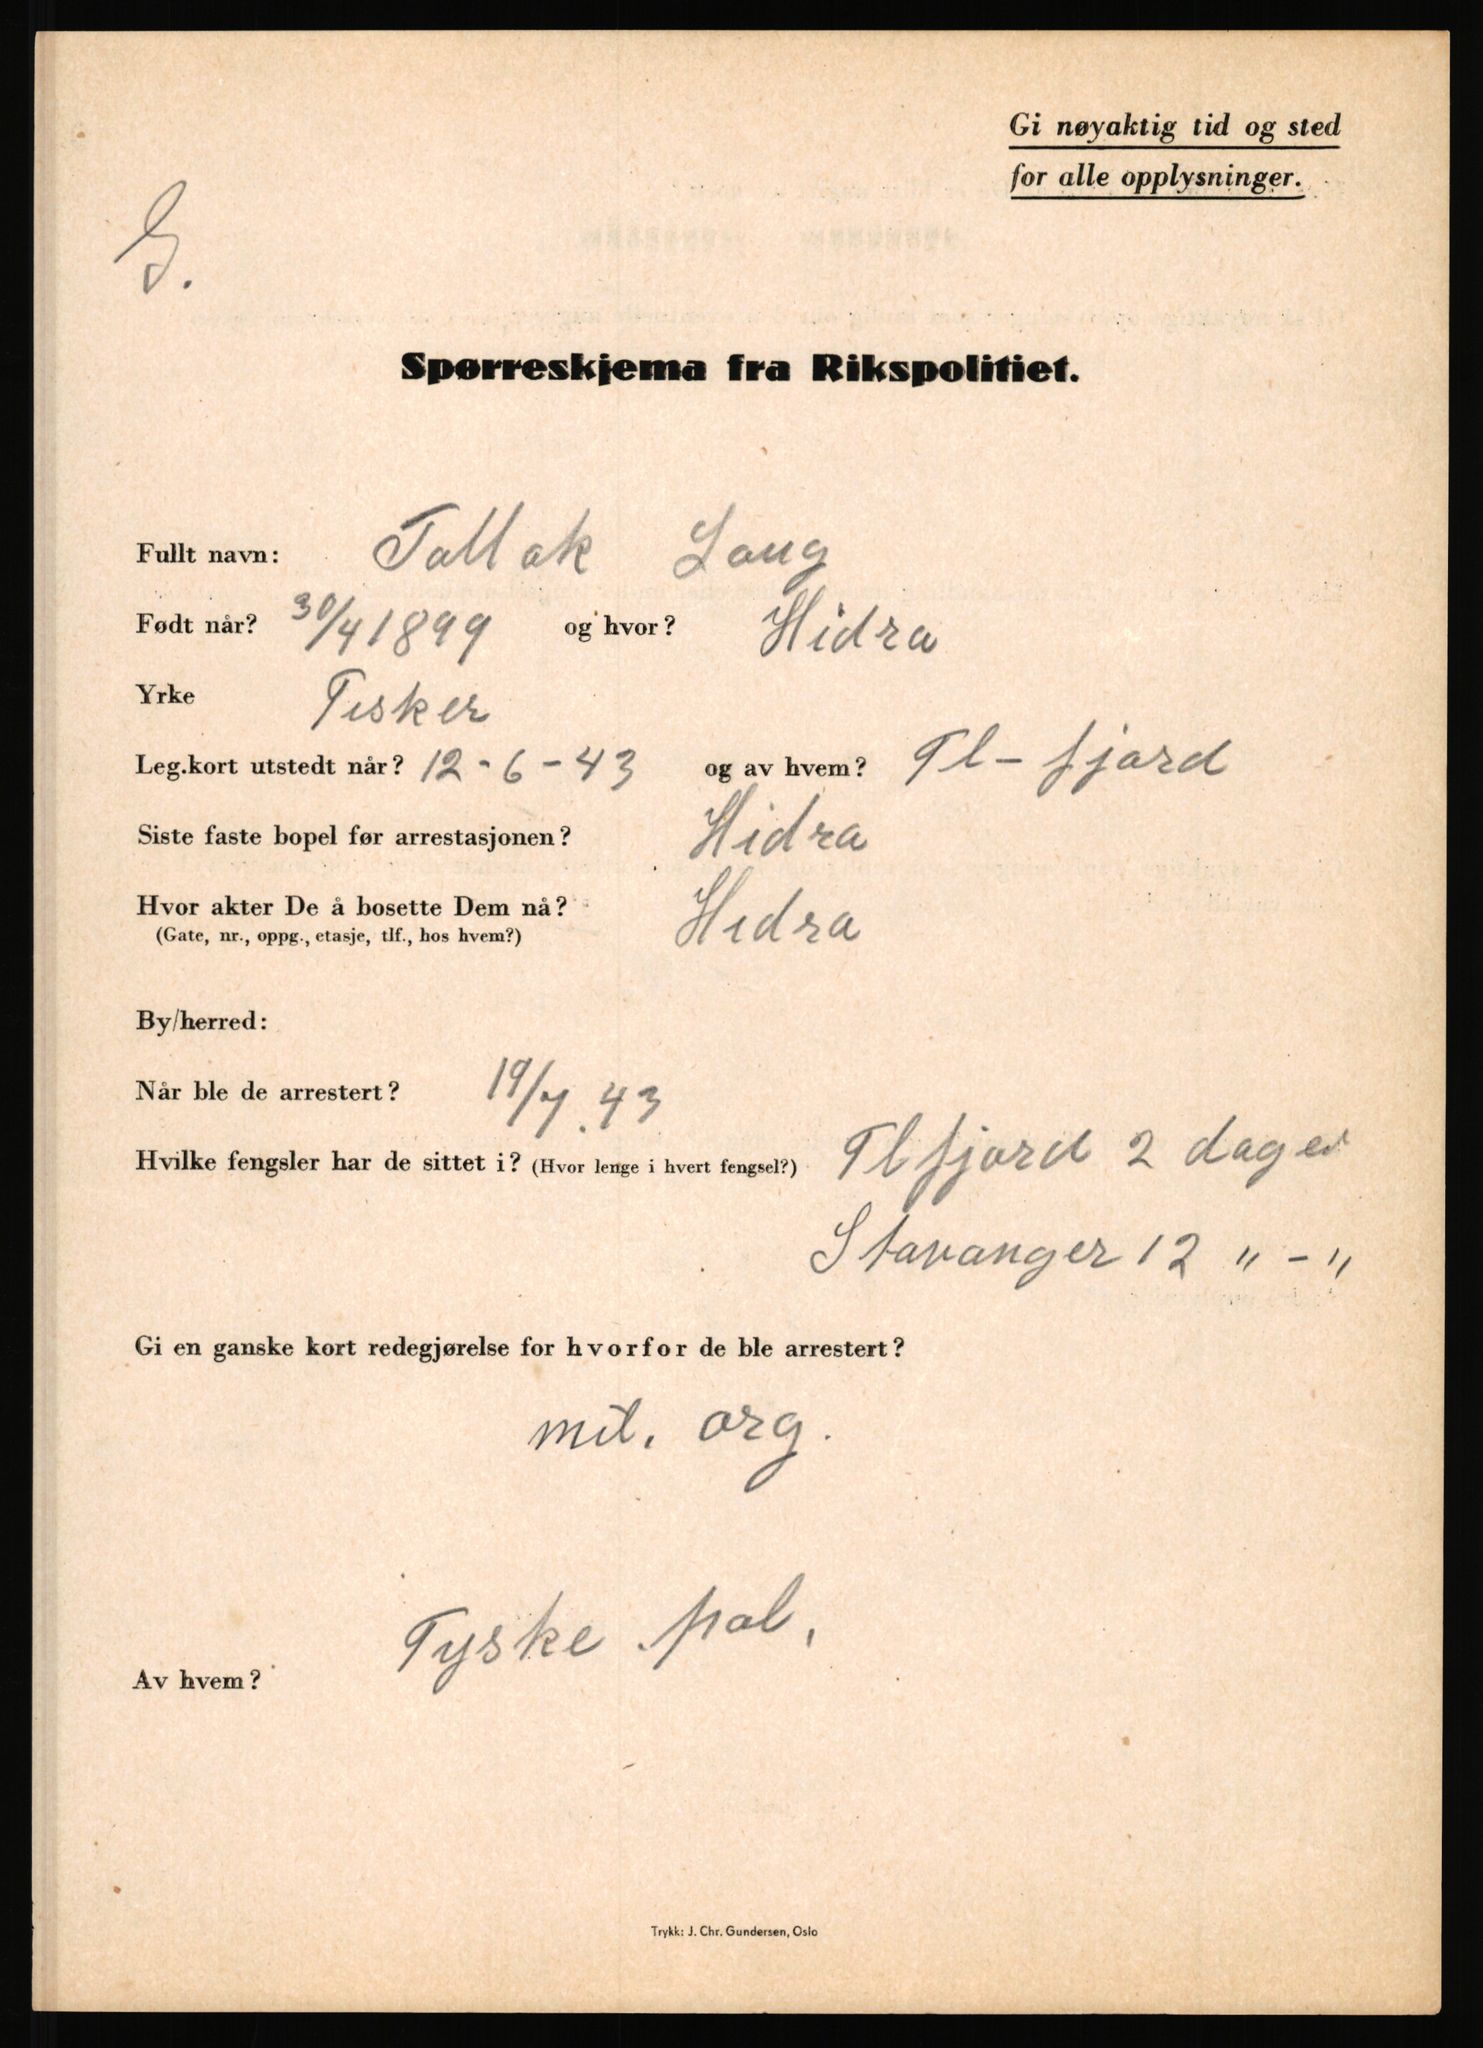 Gi nøyaktig tid og sted
for alle opplysninger.
G.
Spørreskjema fra Rikspolitiet.
Fullt navn: Tallak Laug
Født når? 30/4 1899 og hvor? Hidra
Yrke Fisker
Leg.kort utstedt når? 12-6-43 og av hvem? Fl-fjord
Siste faste bopel før arrestasjonen? Hidra
Hvor akter De å bosette Dem nå? Hidra
(Gate, nr., oppg., etasje, tlf., hos hvem?)
By/herred:
Når ble de arrestert? 19/7.43
Hvilke fengsler har de sittet i? (Hvor lenge i hvert fengsel?) Flfjord 2 dager
Stavanger 12 " - "
Gi en ganske kort redegjørelse for hvorfor de ble arrestert?
mil. org.
Tyske pol.
Av hvem?
Trykk: J. Chr. Gundersen, Oslo